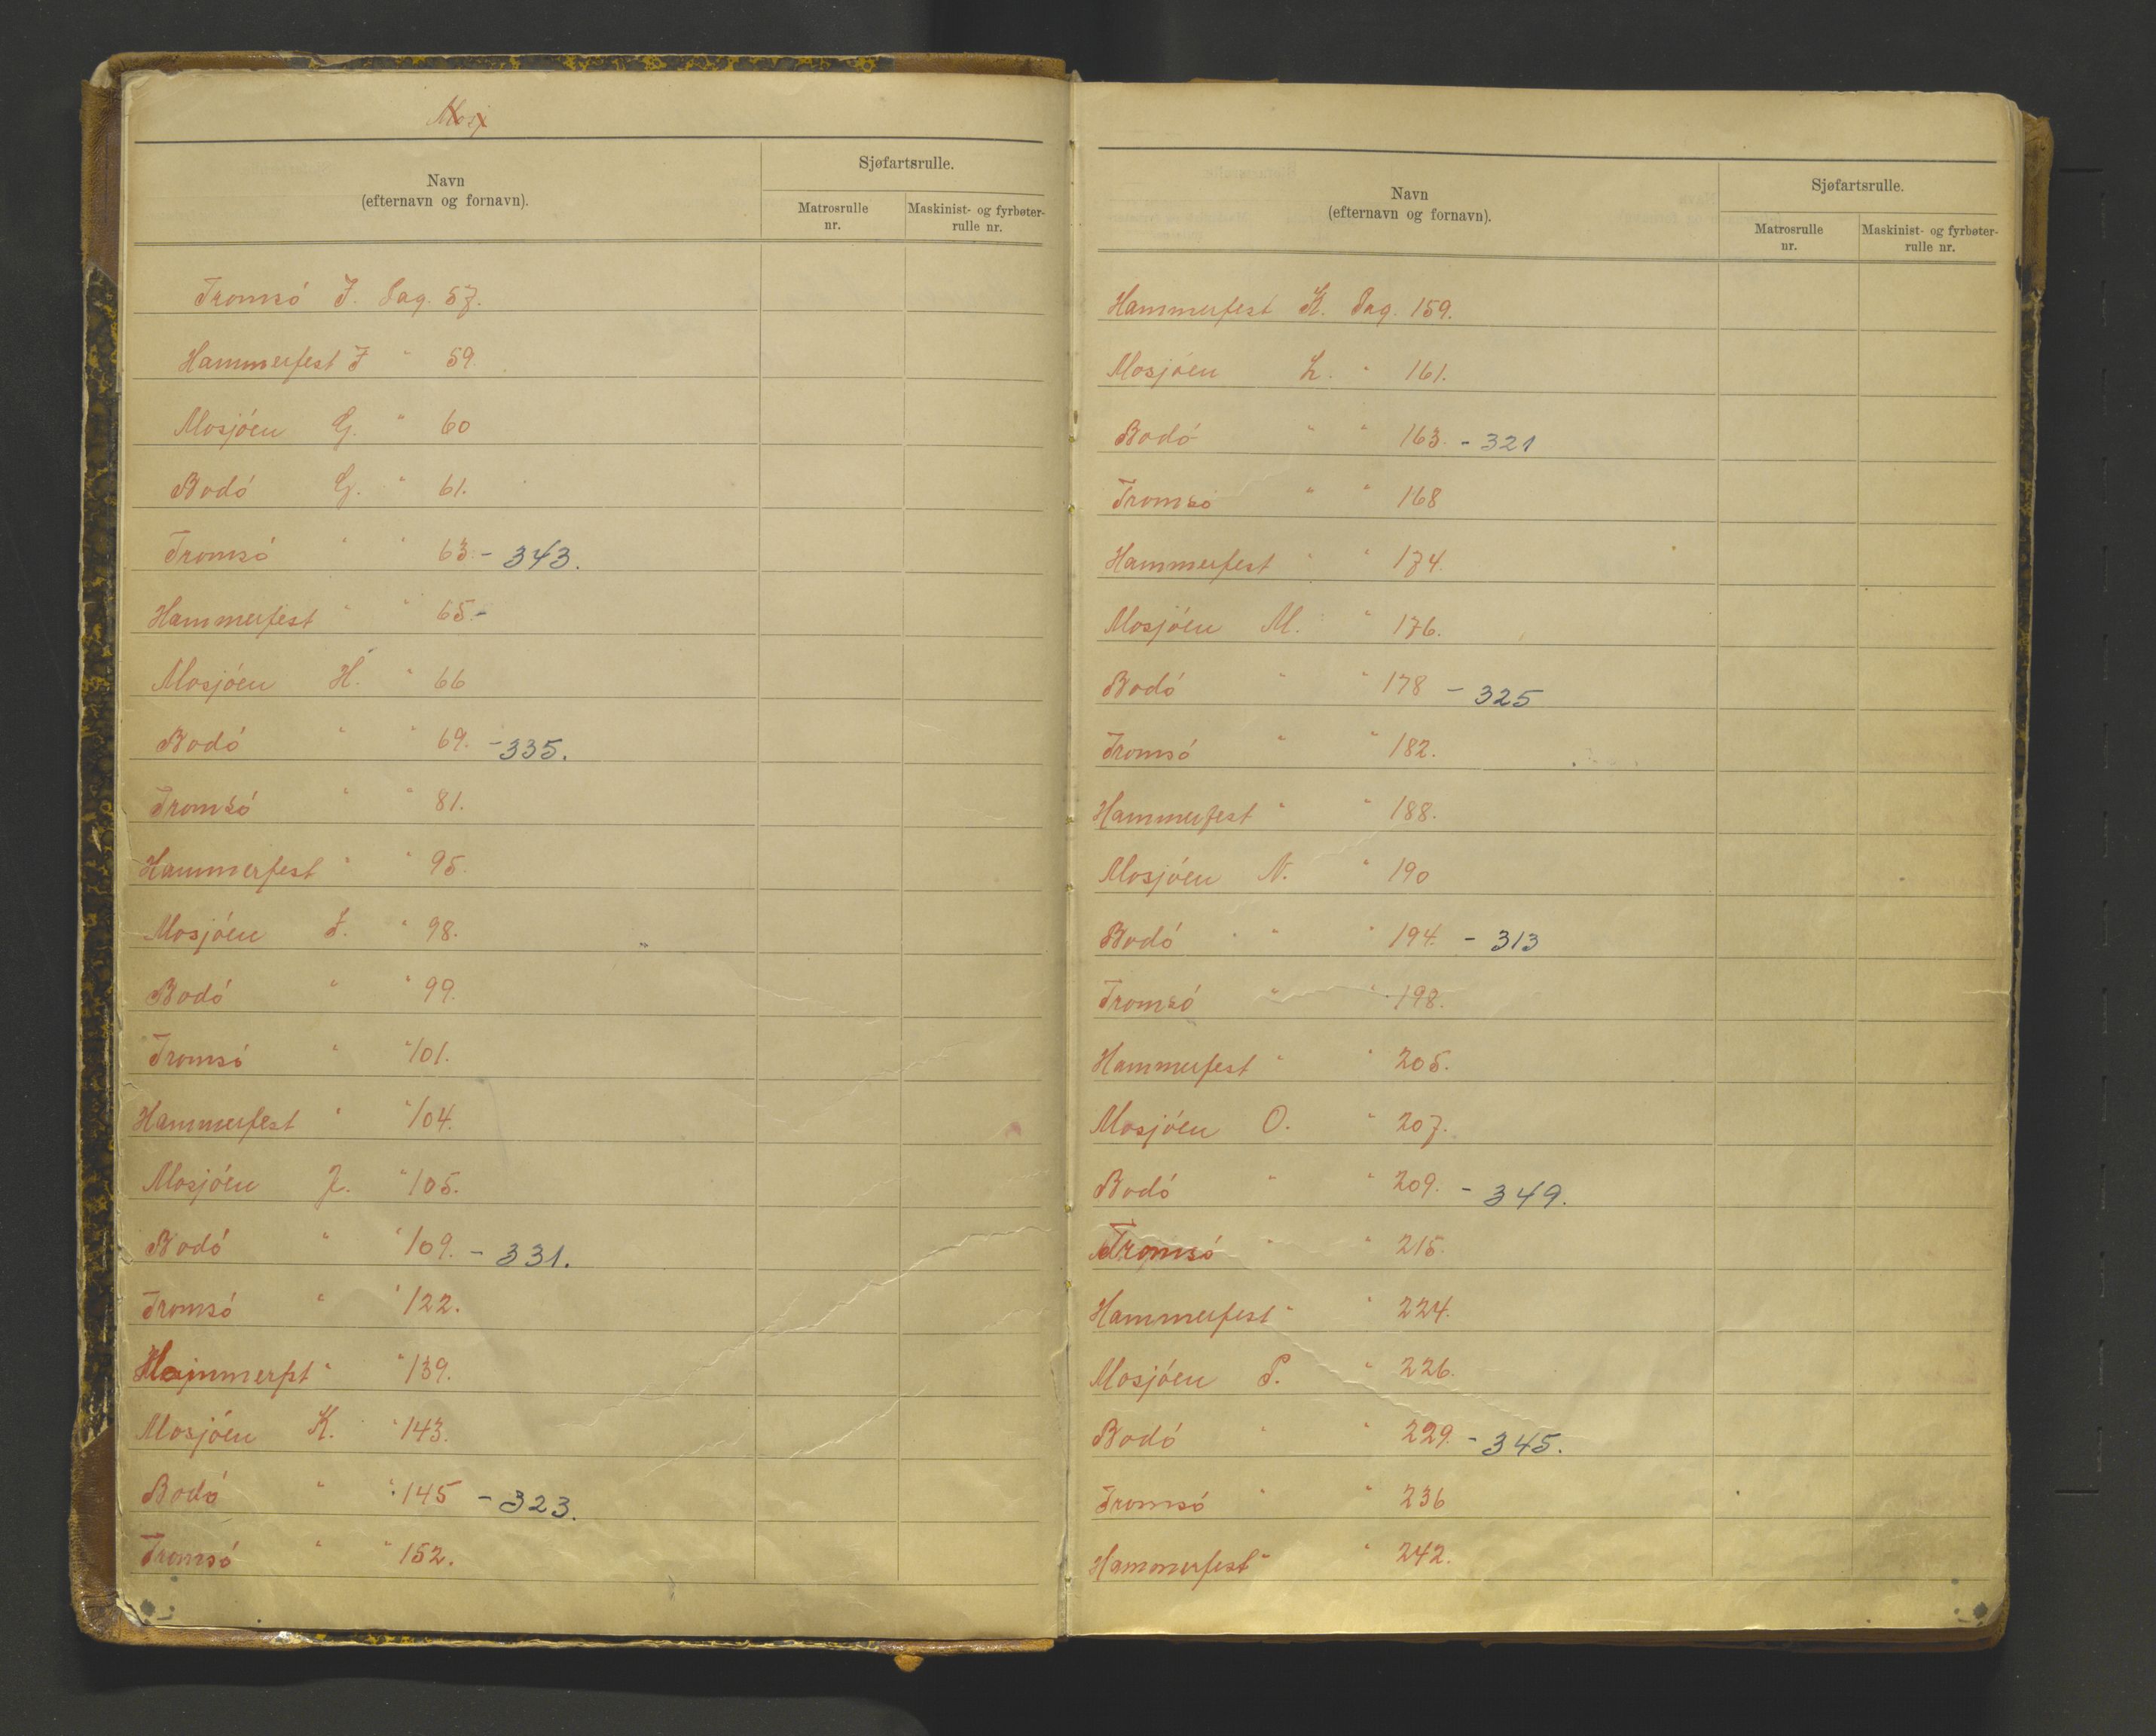 Mosj
Navn
(efternavn og fornavn).
Sjøfartsrulle.
Matrosrulle
nr.
Maskinist- og fyrbøter-
rulle nr.
Tromsó F. Pag. 57.
Hammerfest F " 59.
Mosjóen G. " 60
Bodó G. " 61.
Tromsó " " 63. - 343.
Hammerfest " " 65.-
Mosjóen H. " 66
Bodó " " 69. - 335.
Tromsó " " 81.
Hammerfest " " 95.
Mosjóen I. " 98.
Bodó " " 99.
Tromsó " " 101.
Hammerfest " " 104.
Mosjóen J. " 105.
Bodó " " 109. - 331.
Tromsó " " 122.
Hammerfst " " 139.
Mosjóen K. " 143.
Bodó " " 145 - 323.
Tromsó " " 152.
Navn
(efternavn og fornavn).
Sjøfartsrulle.
Matrosrulle
nr.
Maskinist- og fyrbøter-
rulle nr.
Hammerfest K. Pag. 159.
Mosjóen L. " 161.
Bodó " " 163. - 321
Tromsó " " 168
Hammerfest " " 174.
Mosjóen M. " 176.
Bodó " " 178 - 325
Tromsó " " 182.
Hammerfest " " 188.
Mosjóen N. " 190
Bodó " " 194. - 313
Tromsó " " 198.
Hammerfest " " 205.
Mosjóen O. " 207.
Bodó " " 209. - 349.
Tromsó " " 215.
Hammerfest " " 224.
Mosjóen P. " 226.
Bodó " " 229. - 345.
Tromsó " " 236
Hammerfest " " 242.